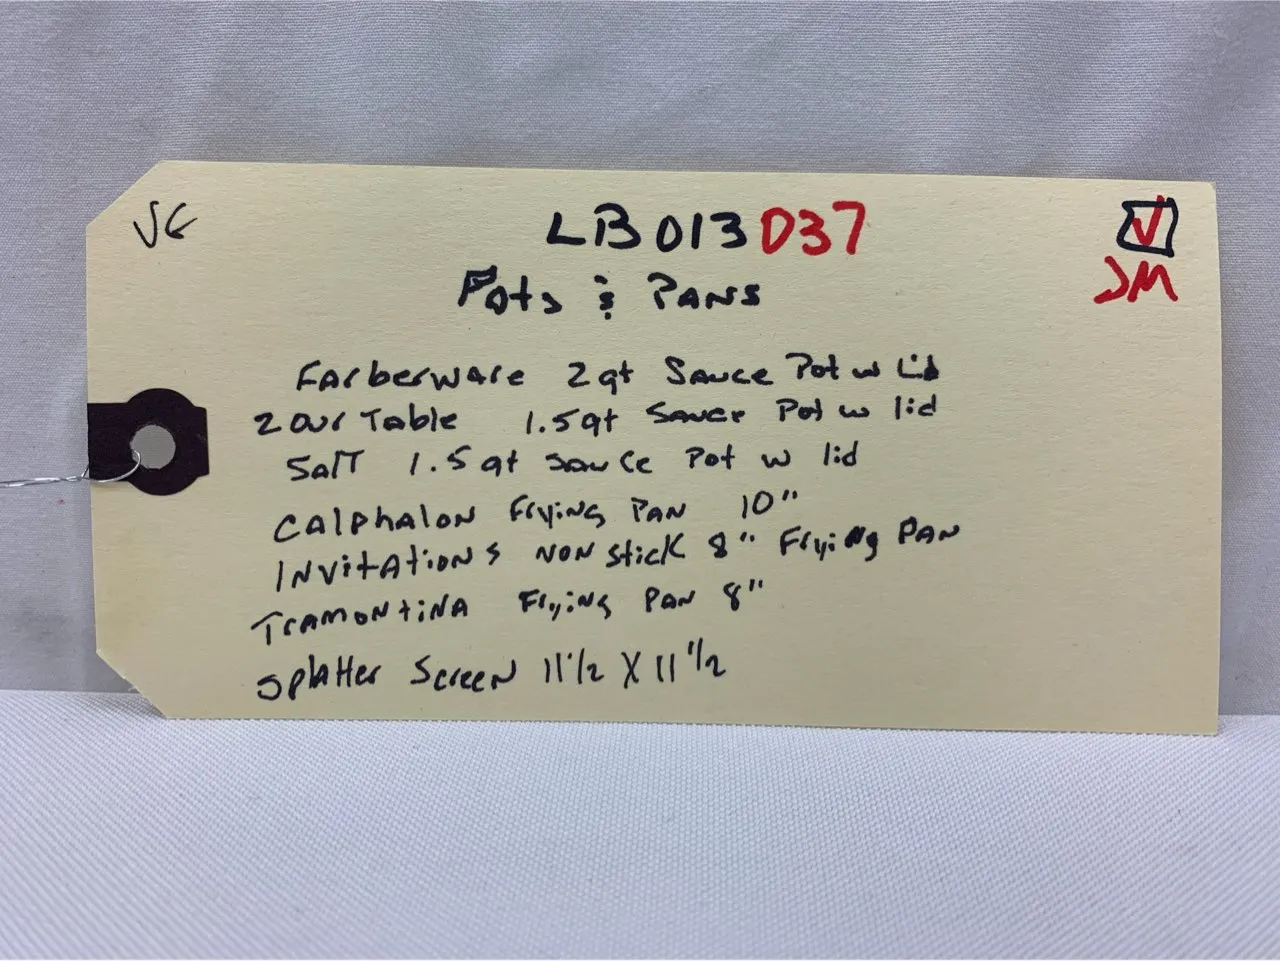 VE
LB013D37
Pots & Pans
Farberware 2qt Sauce Pot w Lid
2 Our Table 1.5qt Sauce Pot w lid
Salt 1.5qt Sauce Pot w lid
Calphalon Frying Pan 10"
Invitations Non Stick 8" Frying Pan
Tramontina Frying Pan 8"
Splatter Screen 11 1/2 X 11 1/2
JM